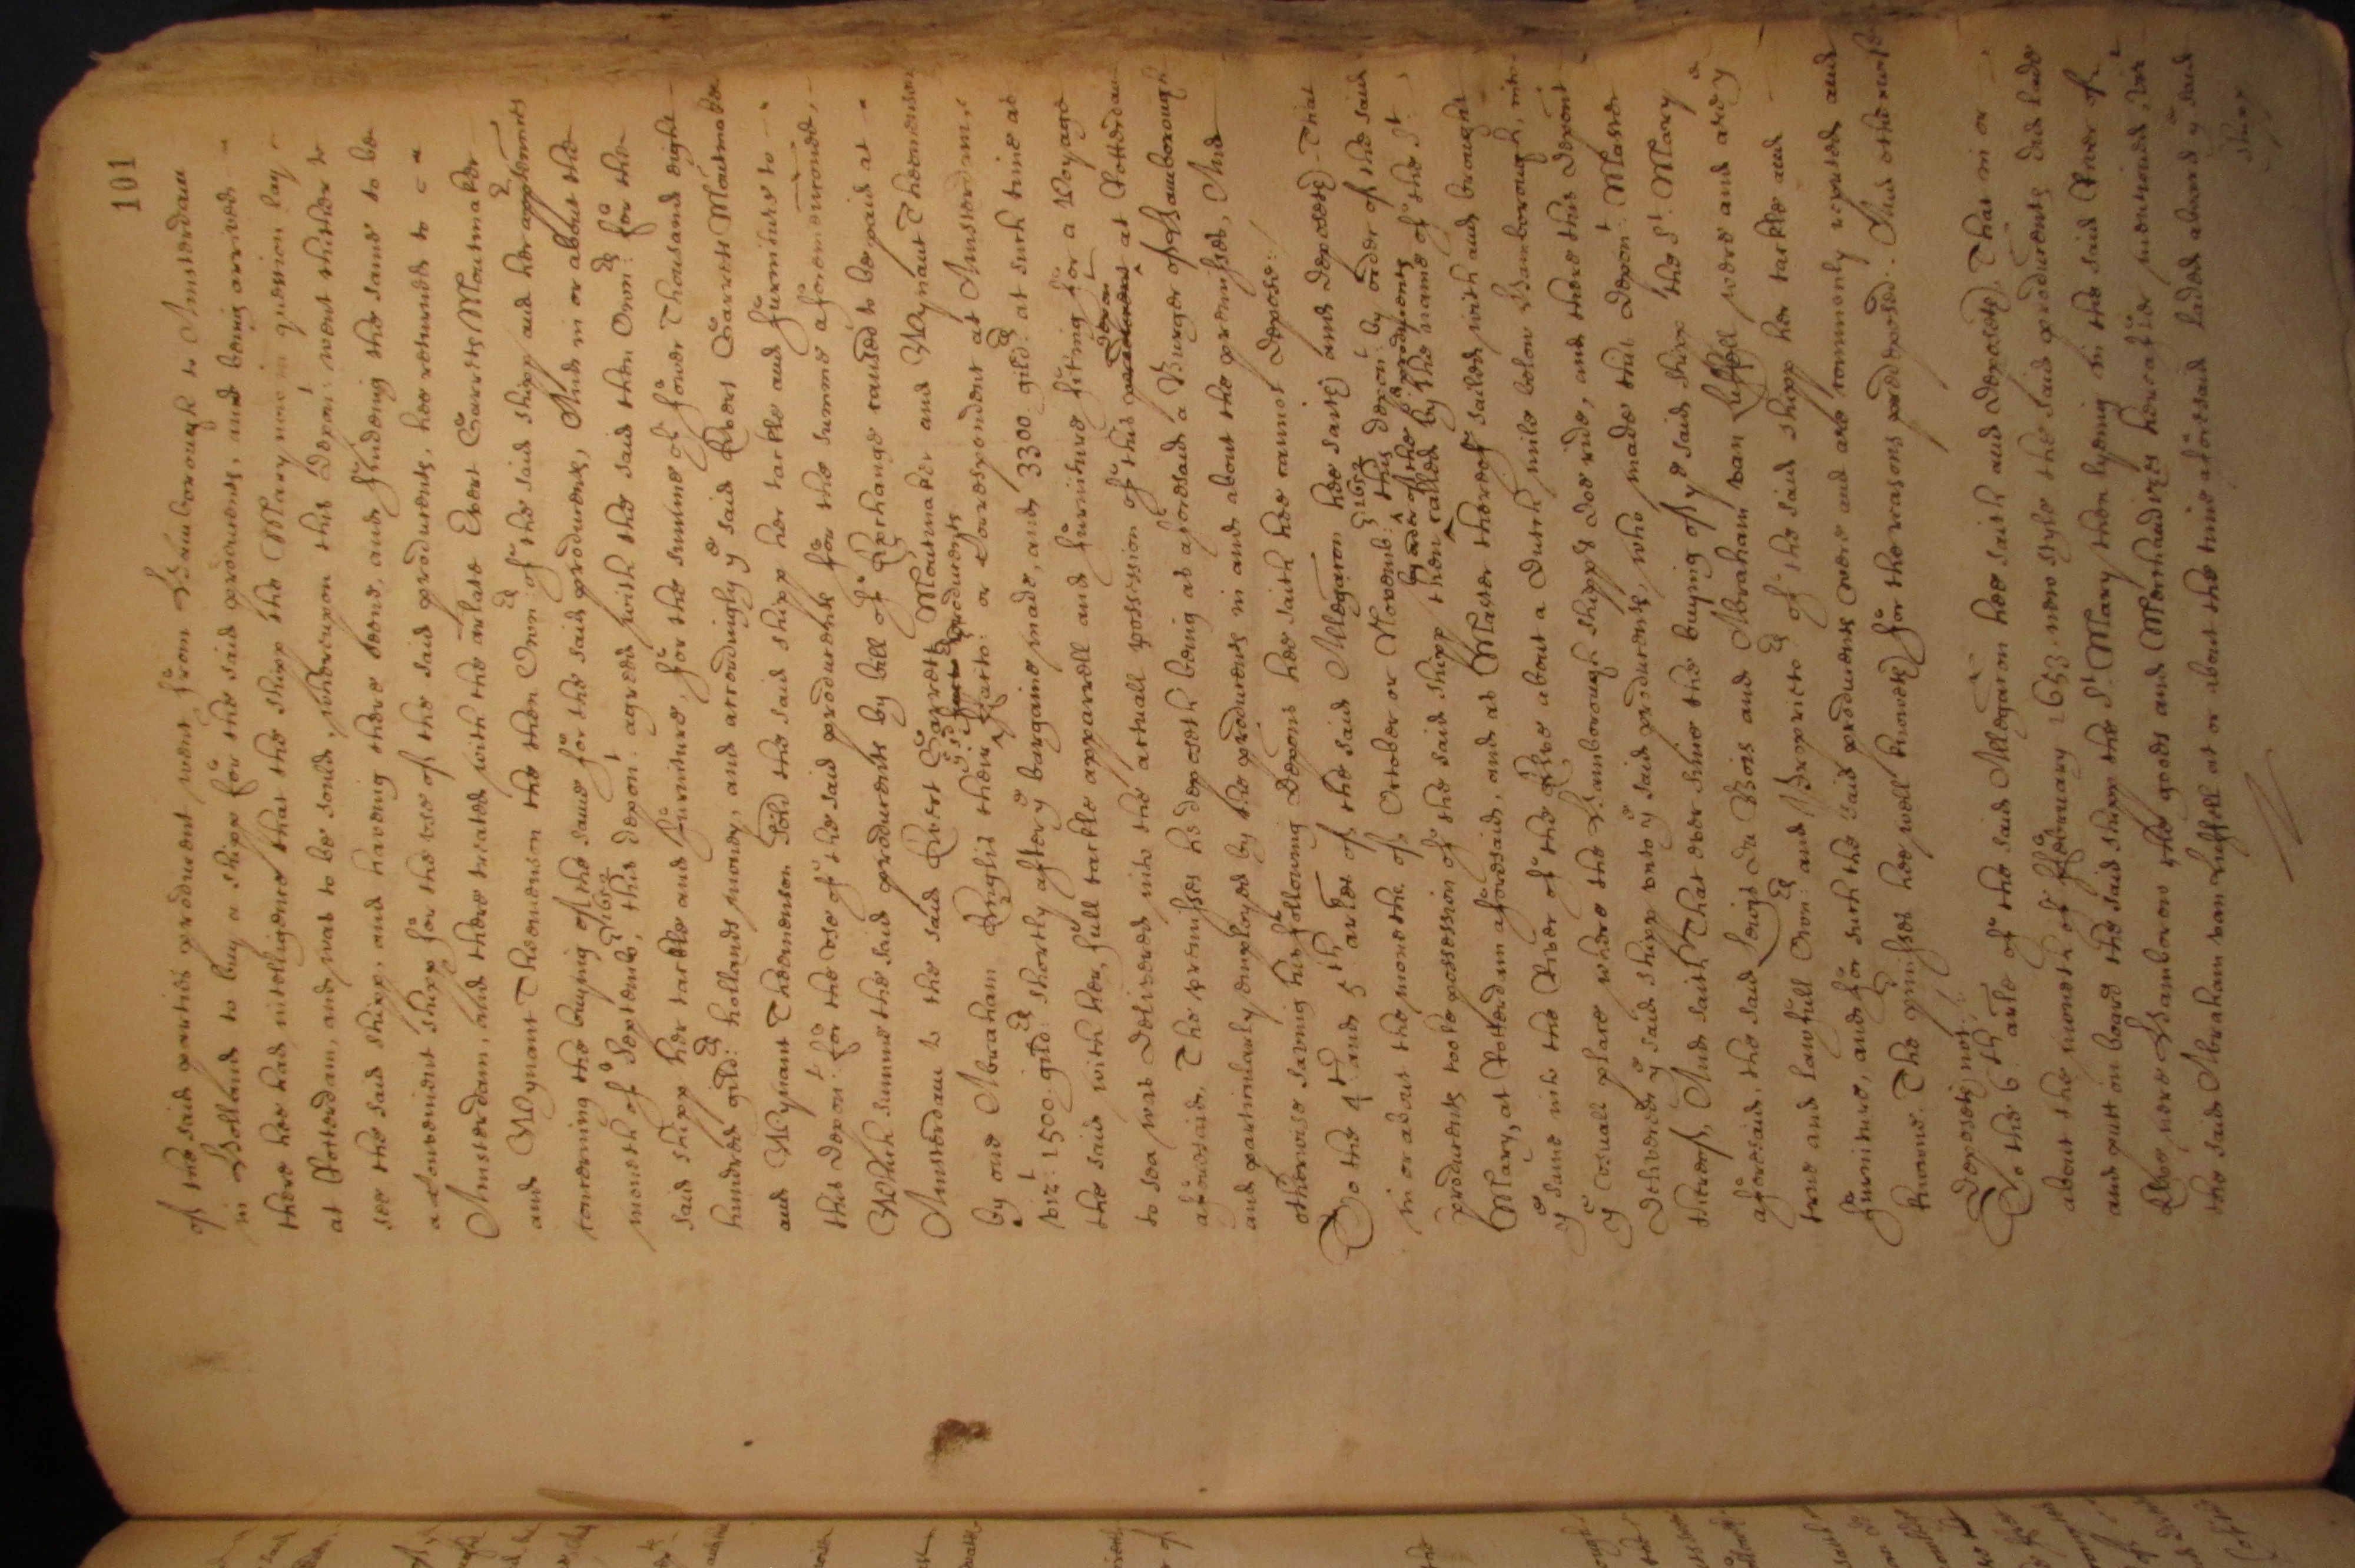 101
of the said parties producent went from Hamborough to Amsterdam
in Holland to buy a shipp for the said producents, and being arrived
there hee had intelligence that the shipp the Mary now in question lay
at Rotterdam, and was to be sould, whereupon this depon:t went thither to
see the said shipp, and haveing there seene, and findeing the same to be
a Convenient shipp for the use of the said producents, hee returned to
Amsterdam, and there treated with the arlate Evert Garrets Moutmaker
and Wynant Theunenson the then Own:ers of the said shipp and her appten̄nces
concerning the buying of the same for the said producents, And in or about the
moneth of Septemb: 1652 this depon:t agreed with the said then Own:ers for the
said shipp her tackle and furniture, for the summe of fower Thousand eight
hundred gild:ers hollands money, and accordingly ye said Evert Garrets Moutmaker
and Wynant Theunenson sold the said shipp her tackle and furniture to
this Depon:t for the use of the said producents for the summe aforemenc̄oned,
Which summe the said producents by bill of Exchange caused to be paid at
Amsterdam to the said Evert Garrets Moutmaker and Wynant Theunenson
by one Abraham English their ye said producents facto:r or Correspondent at Amsterdam,
viz:t 1500: gild:ers shortly after ye bargaine made, and 3300 gild:ers at such time as
the said with her, full tackle apparrell and furniture fitting for a Voyage
to sea was delivered into the actuall possession of this depon:t at Rotterdam
aforesaid, The premisses he deposeth being as aforesaid a Burger of Hamborough
and particularly employed by the producents in and about the premisses, And
otherwise saving his following Depons hee saith hee cannot depose:/
To the 4th: and 5th arles of the said Allegac̄on hee saith and deposeth That
in or about the moneths of October or Novemb: 1652 this depon:t by order of the said
producents tooke possession of the said shipp then called by ye producents by the name of the St:
Mary, at Rotterdam aforesaid, and as Master thereof sailed with and brought
ye same into the River of the Elve about a Dutch mile below Hamborough, into
ye usuall place where the Hamborough shipps doe ride, and there this depon:t
delivered ye said shipp unto ye said producents, who made this depon:t Master
thereof, And saith That ever since the buying of ye said shipp the St: Mary
aforesaid, the said Lewis Du Bois and Abraham van Lussell were and are ye
true and lawfull Own:ers and Proprieto:rs of the said shipp her tackle and
furniture, and for such the said producents were and are commonly reputed and
knowne. The p̄misses hee well knoweth for the reasons p̄deposed. And otherwise
deposeth not:/
To the 6th arle of the said Allegac̄on hee saith and deposeth, That in or
about the moneth of February 1653. new style the said producents did lade
and putt on board the said shipp the St: Mary then lyeing in the said River of
Elve nere Hamborow the goods and Merchandizes hereafter mentioned, viz:t
the said Abraham van Lussell at or about the time aforesaid laded aboard ye said
shipp